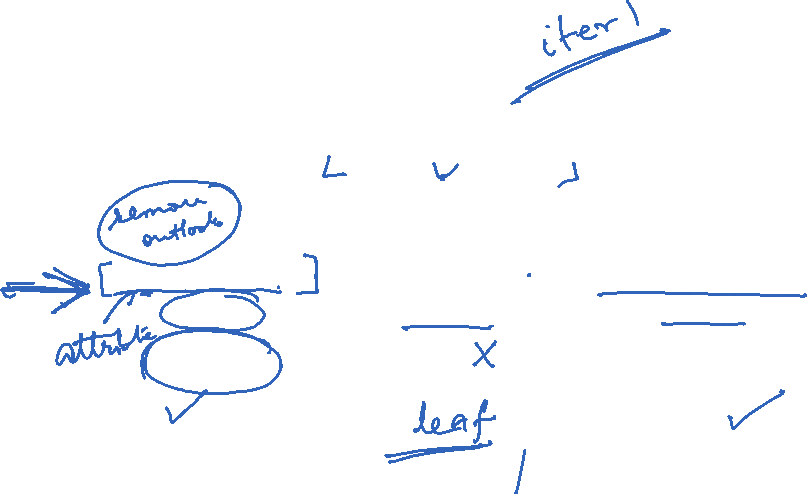 iter 1
remove
outlook
attribute
X
leaf